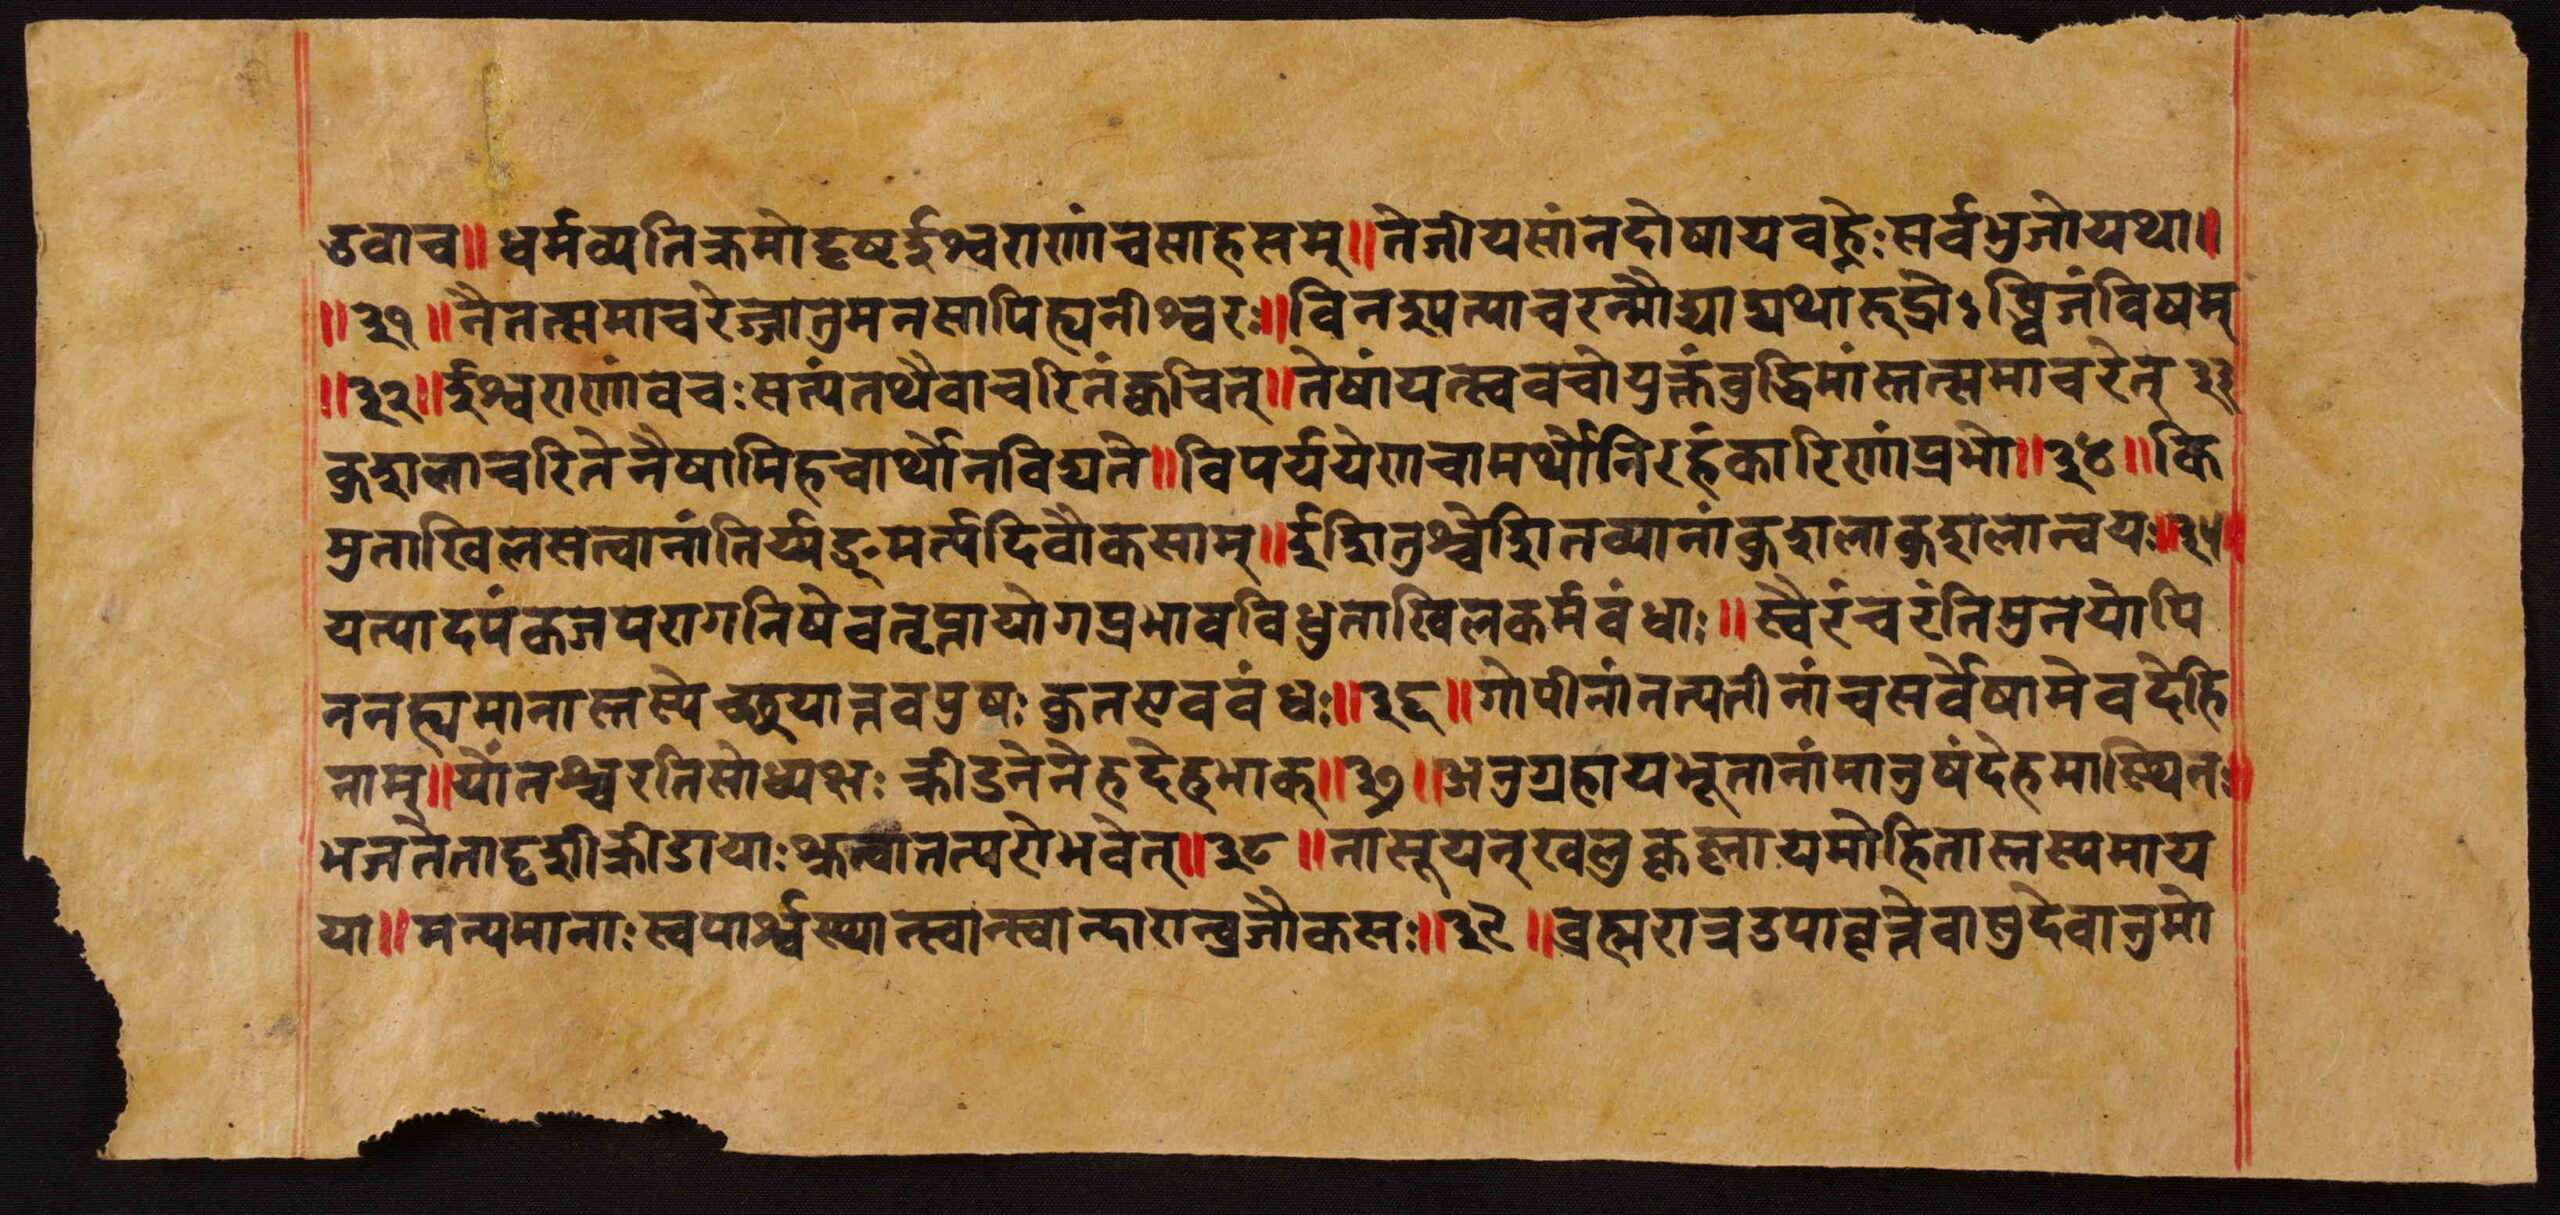 उवाच॥धर्मव्यतिक्रमोदृष्टईश्वराणांचसाहसम्॥तेजीयसांनदोषायवह्नेःसर्वभुजोयथा॥
॥३१॥नैतत्समाचरेज्जातुमनसापिह्यनीश्वरः॥विनश्यत्याचरन्मौढ्याद्यथारुद्रोऽब्धिजंविषम्
॥३२॥ईश्वराणांवचःसत्यंतथैवाचरितंक्वचित्॥तेषांयत्स्ववचोयुक्तंबुद्धिमांस्तत्समाचरेत्३३
कुशलाचरितेनैषामिहचार्थोनविद्यते॥विपर्ययेणचामर्थोनिरहंकारिणांप्रभो॥३४॥कि
मुताखिलसत्वानांतिर्य्यङ्मर्त्यदिवौकसाम्॥ईशितुश्चेशितव्यानांकुशलाकुशलान्वयः॥३५॥
यत्पादपंकजपरागनिषेवतृप्तायोगप्रभावविधुताखिलकर्मबंधाः॥स्वैरंचरंतिमुनयोपि
ननह्यमानास्तस्येच्छयात्तवपुषःकुतएवबंधः॥३६॥गोपीनांतत्पतीनांचसर्वेषामेवदेहि
नाम्॥योंतश्चरतिसोध्यक्षःक्रीडनेनेहदेहभाक्॥३७॥अनुग्रहायभूतानांमानुषंदेहमाश्रितः॥
भजतेतादृशीक्रीडायाःश्रुत्वातत्परोभवेत्॥३८॥नासूयन्खलुकृष्णायमोहितास्तस्यमाय
या॥मन्यमानाःस्वपार्श्वस्थान्स्वान्स्वान्दारान्व्रजौकसः॥३९॥ब्रह्मरात्रउपावृत्तेवासुदेवानुमो